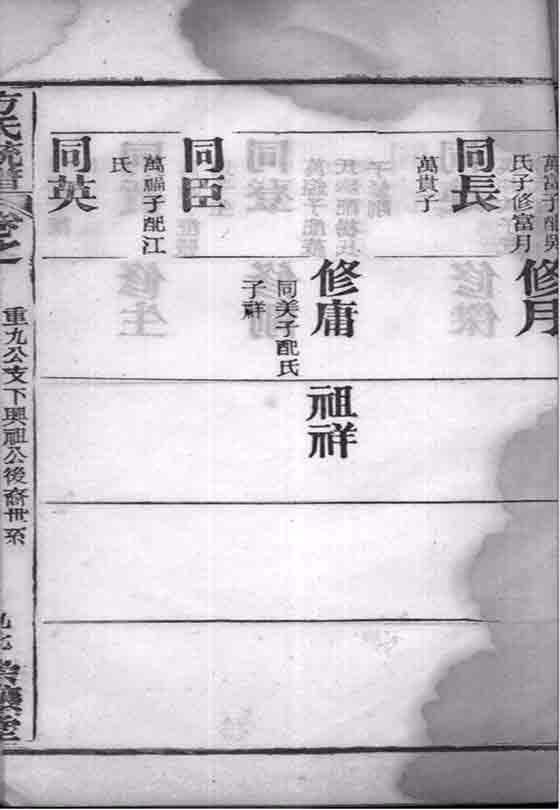 氏子修富月
同長
萬貴子
同臣
萬福子配江
氏
同英
修月
修庸
同美子配氏
子祥
祖祥
方氏統譜
卷之一
重九公支下興祖公後裔世系